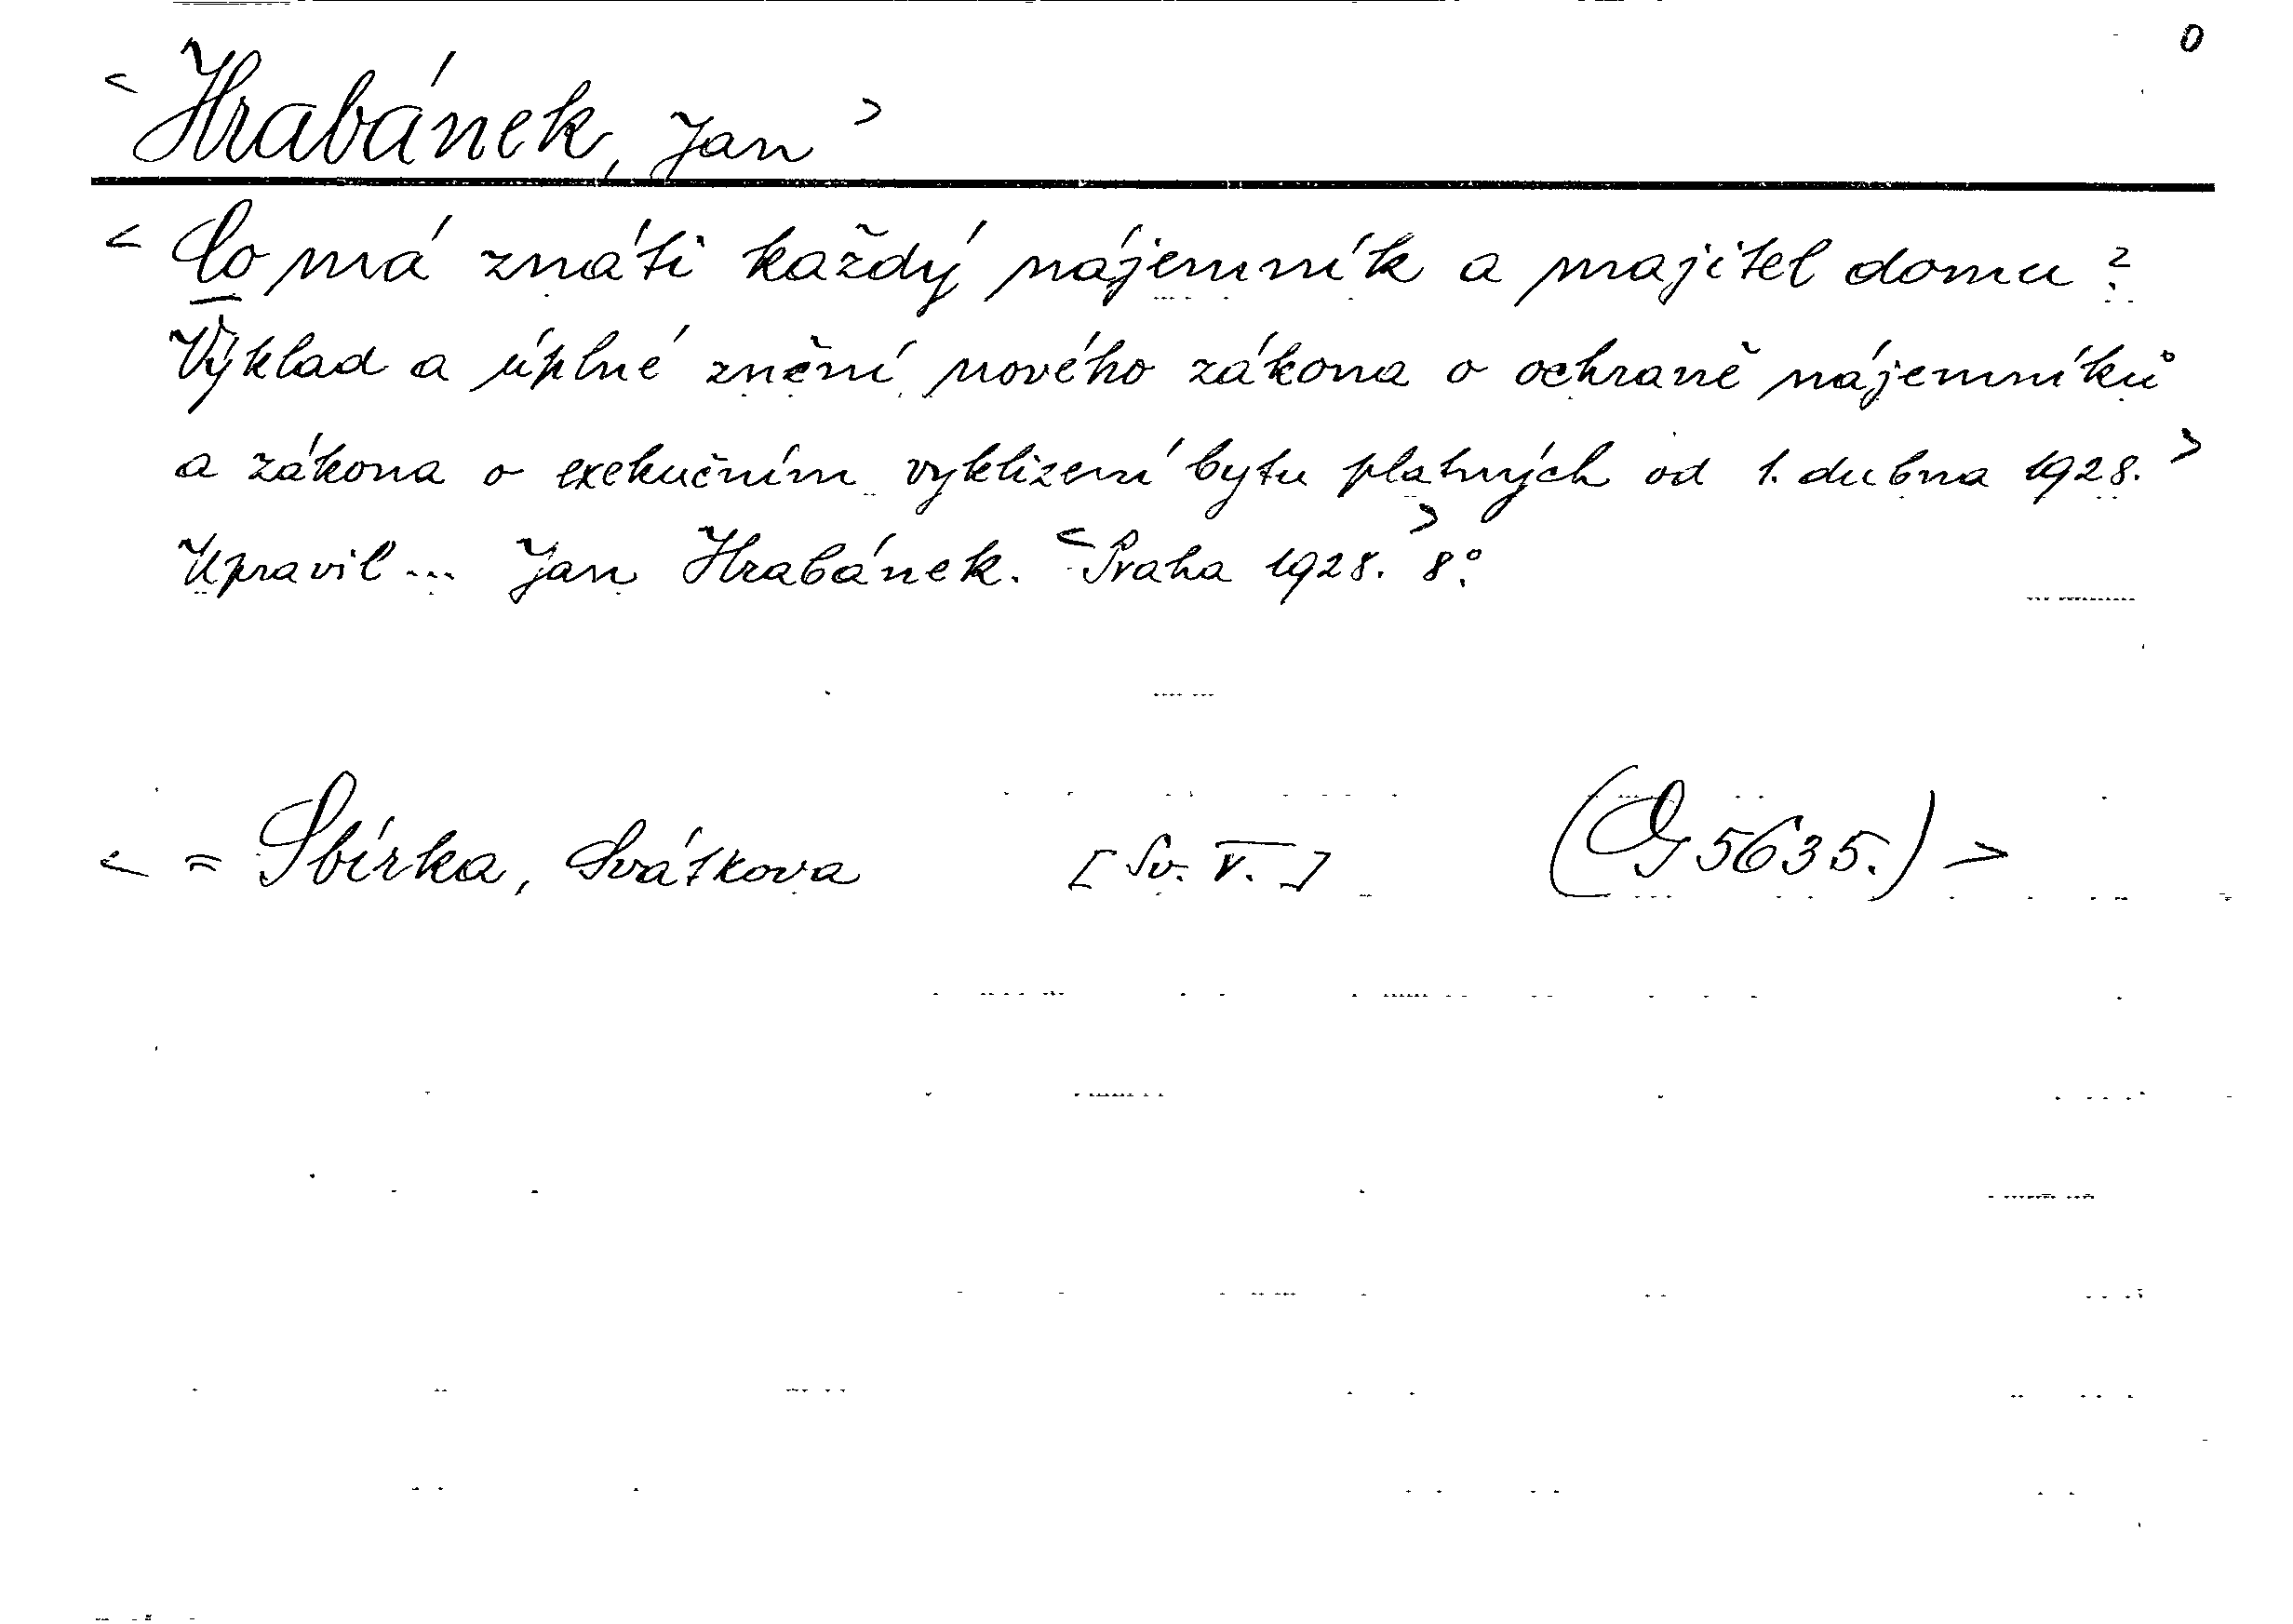 0
< Hrabánek, Jan >
< Co má znáti každý nájemník a majitel domu?
Výklad a úplné znění nového zákona o ochraně nájemníků
a zákona o exekučním vyklizení bytu platných od 1. dubna 1928. >
Upravil... Jan Hrabánek. < Praha 1928. > 8°.
< = Sbírka, Svátkova [Sv. V.] (Og 5635.) >